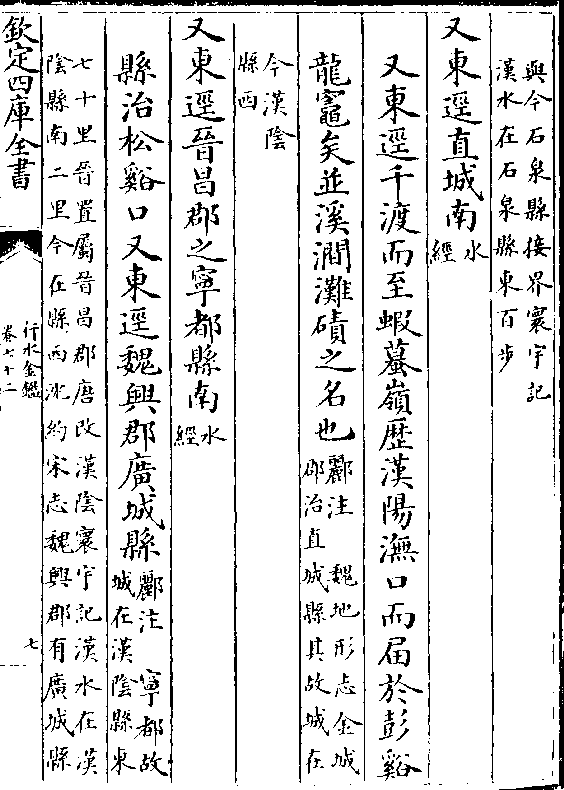 與今石泉縣接界寰宇記
漢水在石泉縣東百步
又東逕直城南水經
又東逕千渡而至蝦蟇嶺歷漢陽潕口而屆於彭谿
龍竈矣並溪澗灘磧之名也酈注 魏地形志金城
郡治直城縣其故城在
今漢陰
縣西
又東逕晉昌郡之寧都縣南水經
縣治松谿口又東逕魏興郡廣城縣酈注 寧都故
城在漢陰縣東
七十里晉置屬晉昌郡唐改漢陰寰宇記漢水在漢
陰縣南二里今在縣西沈約宋志魏興郡有廣城縣
欽定四庫全書
行水金鑑
卷七十二
七